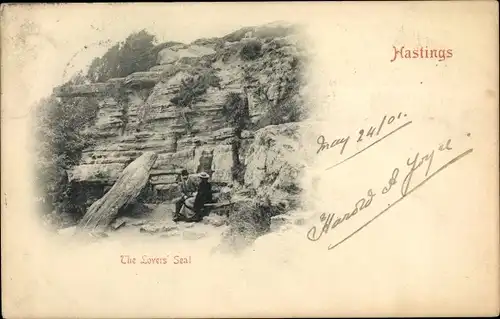 Hastings
May 24/01.
Harold A Joyce
The Lovers' Seat